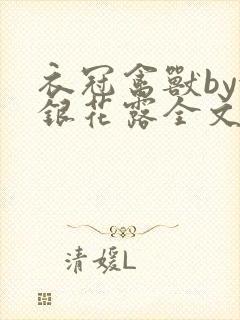 衣冠禽獸by
銀花露全文
清媛L